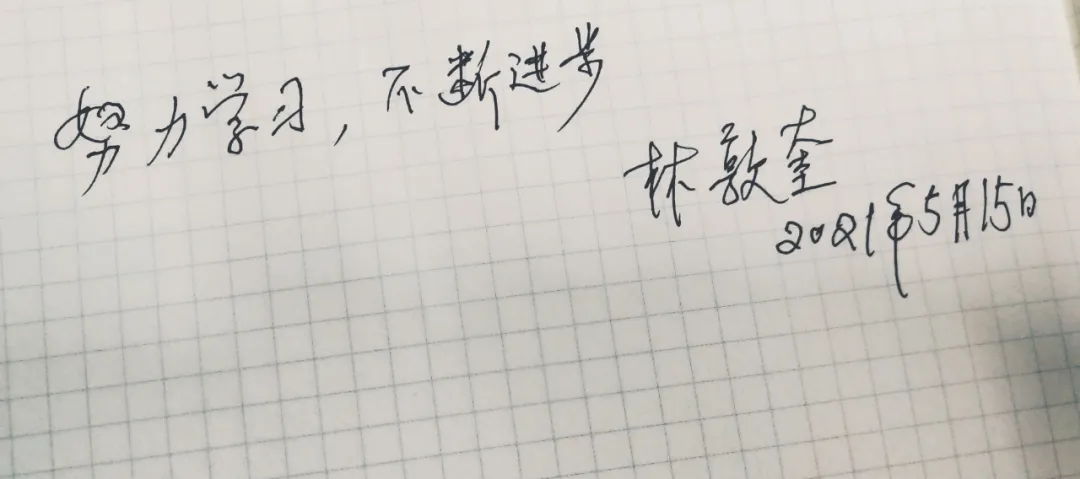 努力学习，不断进步
林敦奎
2021年5月15日